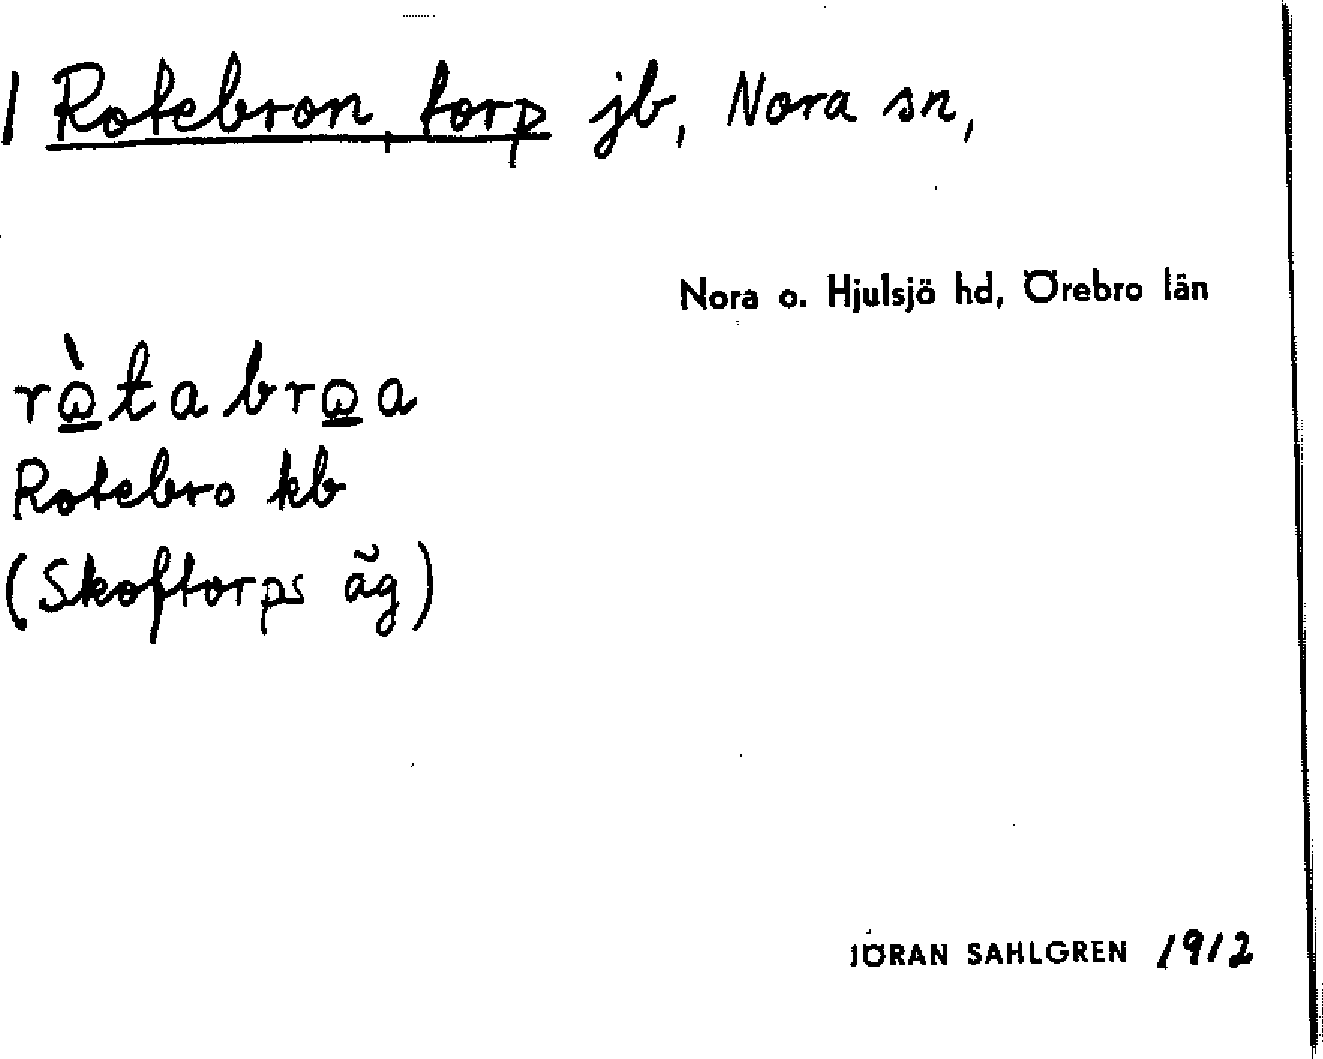 | Rotebron, torp jb, Nora sn,
Nora o. Hjulsjö hd, Örebro län
rὼtabrωa
Rotebro kb
(Skoftorps äg)
JÖRAN SAHLGREN 1912